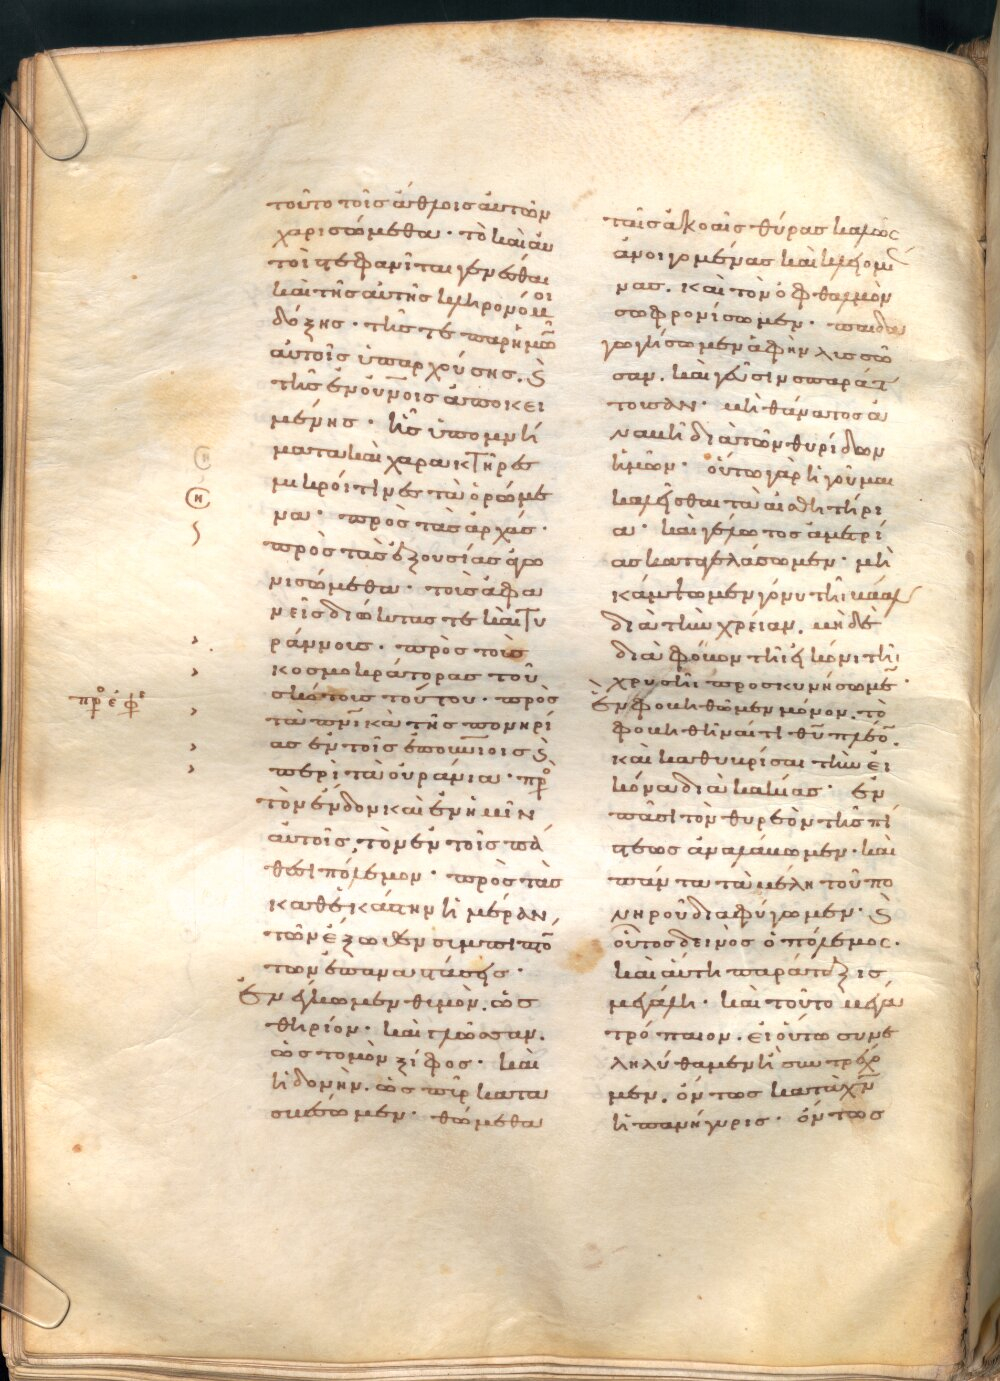 τοῦτο τοῖς ἄθλοις αὐτῶν
χαρισώμεθα · τὸ καὶ αὐ
τοὶ στεφανῖται γενέσθαι
καὶ τῆς αὐτῆς κληρονόμοι
δόξης · τῆς τε παρ' ἡμῶ
αὐτοῖς ὑπαρχούσης. ϗ
τῆς ἐν οὐνοις ἀποκει
μένης · ἧς ὑπομνή
ματα καὶ χαρακτῆρες
μικρόι τινες τὰ ὁρώμε
να · πρὸς τὰς ἀρχάς ·
πρὸς τὰς ἐξουσίας ἀγω
νισώμεθα · τοὺς ἀφα
νεῖς διώκτας τε καὶ τυ
ράννους · πρὸς τοὺς
κοσμοκράτορας τοῦ
σκότους τούτου · πρὸς
τὰ πνικὰ τῆς πονηρί
ας ἐν τοῖς ἐπουνίοις ϗ
περὶ τὰ οὐράνια · πρὸ
τὸν ἔνδον καὶ ἐν ἡμῖν
αὐτοῖς, τὸν ἐν τοῖς πά
θεσι πόλεμον · πρὸς τὰς
καθεκάστην ἡμέραν,
τῶν ἔξωθεν συμπιπτό
των ἐπαναστάσεις ·
Ἐνέγκωμεν θυμὸν. ὡς
θηρίον · καὶ γλῶσσαν.
ὡς τομὸν ξίφος · καὶ
ἡδονὴν. ὡς πῦρ κατα
σβέσωμεν · θώμεθα
προ εφε
ταῖς ἀκοαῖς θύρας καλῶς
ἀνοιγομένας καὶ κλειομέ
νας. καὶ τὸν ὀφθαλμὸν
σωφρονίσωμεν · παιδα
γωγήσωμεν ἁφὴν λυσσῶ
σαν. καὶ γεῦσιν σπαράτ
τουσαν · μὴ θάνατος ἀ
ναβῆ διὰ τῶν θυρίδων
ἡμῶν · οὕτω γὰρ ἡγοῦμαι
καλεῖσθαι τὰ αἰσθητήρι
α · καὶ γέλωτος ἀμετρί
ας καταγελάσωμεν · μὴ
κάμψωμεν γόνυ τῆ βάαλ
διὰ τὴν χρείαν. μηδὲ
διὰ φόβον τῆ εἰκόνι τῆ
χρυσῆ προσκυνήσωμε ·
Ἐν φοβηθῶμεν μόνον. τὸ
φοβηθῆναί τι θυ πλέο.
καὶ καθυβρίσαι τὴν εἰ
κόνα διὰ κακίας · ἐν
πᾶσι τὸν θυρεὸν τῆς πί
στεως ἀναλάβωμεν · καὶ
πάντα τὰ βέλη τοῦ πο
νηροῦ διαφύγωμεν · ϗ
οὗτος δεινὸς ὁ πόλεμος.
καὶ αὕτη παράταξις
μεγάλη · καὶ τοῦτο μέγα
τρόπαιον. εἰ οὕτω συνε
ληλύθαμεν ἢ συντρέχο
μεν. ὄντως κατὰ χν
ἡ πανήγυρις · ὄντως